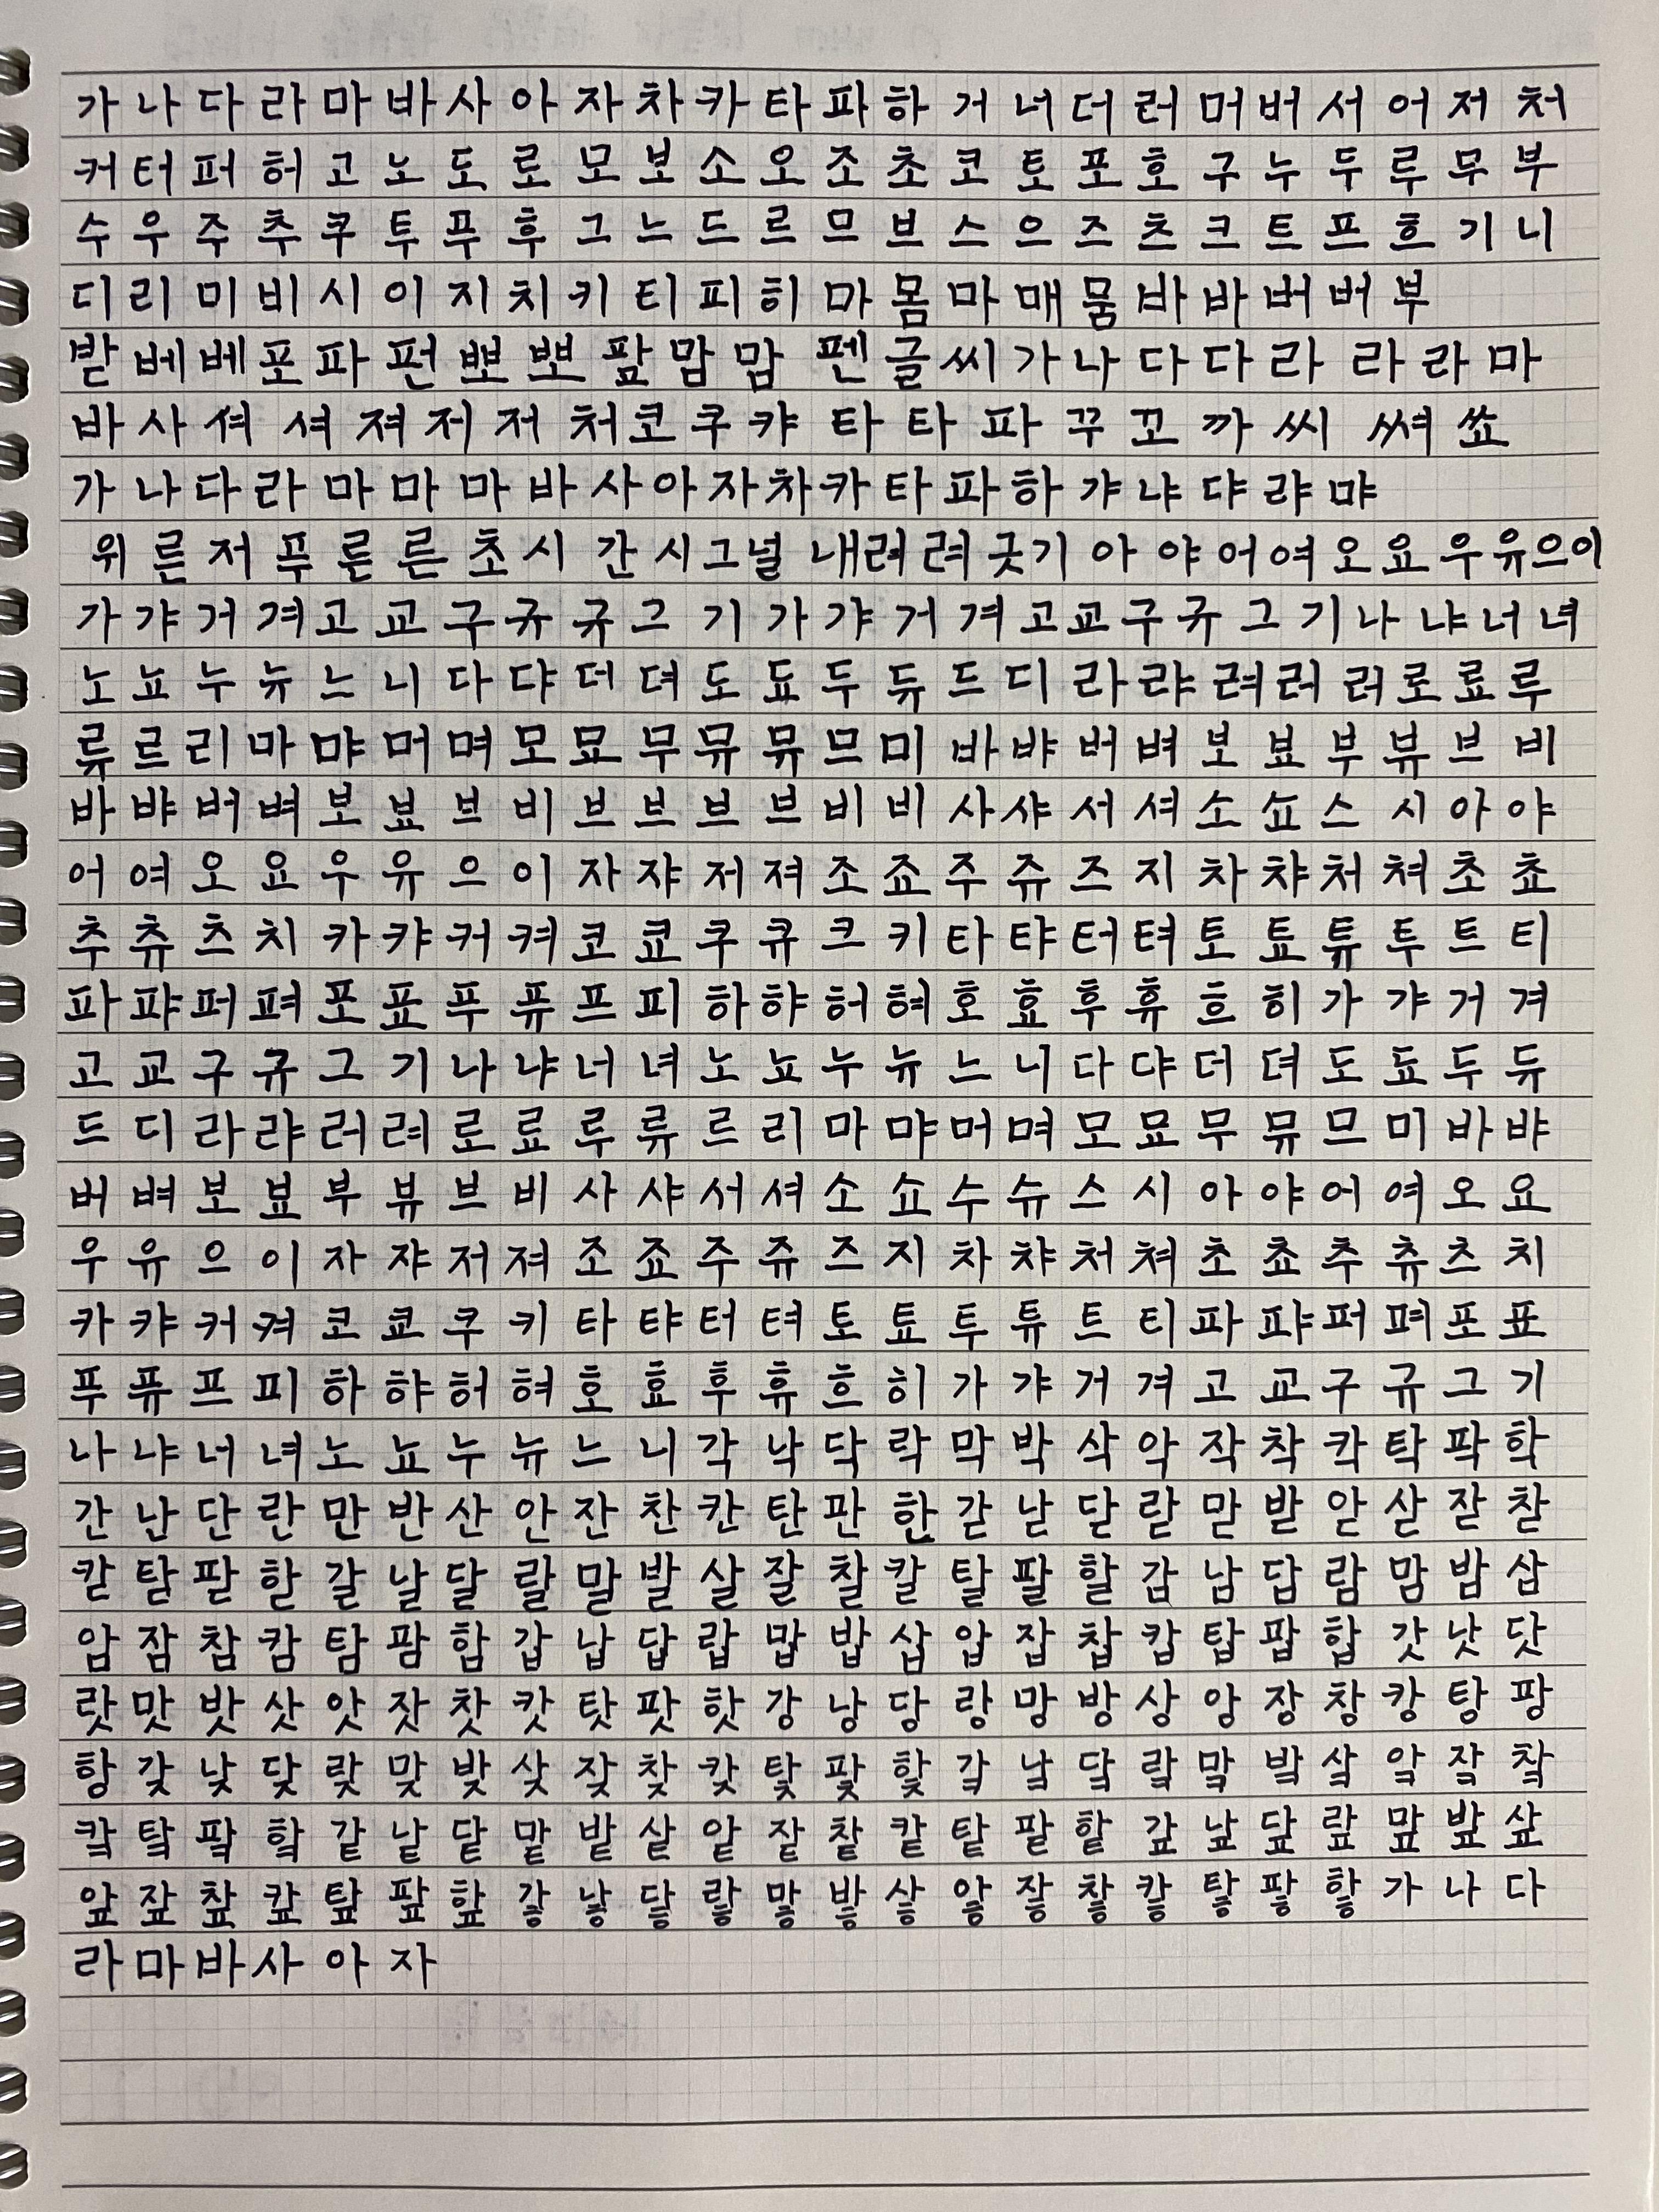 가 나 다 라 마 바 사 아 자 차 카 타 파 하 거 너 더 러 머 버 서 어 저 처
커 터 퍼 허 고 노 도 로 모 보 소 오 조 초 코 토 포 호 구 누 두 루 무 부
수 우 주 추 쿠 투 푸 후 그 느 드 르 므 브 스 으 즈 츠 크 트 프 흐 기 니
디 리 미 비 시 이 지 치 키 티 피 히 마 몸 마 매 뭄 바 바 버 버 부
받 베 베 포 파 펀 뽀 뽀 팚 맘 맙 펜 글 씨 가 나 다 다 라 라 라 마
바 사 셔 셔 져 저 저 처 코 쿠 캬 타 타 파 꾸 꼬 까 씨 쎠 쑈
가 나 다 라 마 마 마 바 사 아 자 차 카 타 파 하 갸 냐 댜 랴 먀
위 른 저 푸 룬 른 초 시 간 시 그 널 내 려 려 긋 기 아 야 어 여 오 요 우 유 으 이
가 갸 거 겨 고 교 구 규 규 그 기 가 갸 거 겨 고 교 구 규 그 기 나 냐 너 녀
노 뇨 누 뉴 느 니 다 댜 더 뎌 도 됴 두 듀 드 디 라 랴 려 러 러 로 료 루
류 르 리 마 먀 머 며 모 묘 무 뮤 뮤 므 미 바 뱌 버 벼 보 뵤 부 뷰 브 비
바 뱌 버 벼 보 뵤 브 비 브 브 브 브 비 비 사 샤 서 셔 소 쇼 스 시 아 야
어 여 오 요 우 유 으 이 자 쟈 저 져 조 죠 주 쥬 즈 지 차 챠 처 쳐 초 쵸
추 츄 츠 치 카 캬 커 켜 코 쿄 쿠 큐 크 키 타 탸 터 텨 토 툐 튜 투 트 티
파 퍄 퍼 펴 포 표 푸 퓨 프 피 하 햐 허 혀 호 효 후 휴 흐 히 가 갸 거 겨
고 교 구 규 그 기 나 냐 너 녀 노 뇨 누 뉴 느 니 다 댜 더 뎌 도 됴 두 듀
드 디 라 랴 러 려 로 료 루 류 르 리 마 먀 머 며 모 묘 무 뮤 므 미 바 뱌
버 벼 보 뵤 부 뷰 브 비 사 샤 서 셔 소 쇼 수 슈 스 시 아 야 어 여 오 요
우 유 으 이 자 쟈 저 져 조 죠 주 쥬 즈 지 차 챠 처 쳐 초 쵸 추 츄 츠 치
카 캬 커 켜 코 쿄 쿠 키 타 탸 터 텨 토 툐 투 튜 트 티 파 퍄 퍼 펴 포 표
푸 퓨 프 피 하 햐 허 혀 호 효 후 휴 흐 히 가 갸 거 겨 고 교 구 규 그 기
나 냐 너 녀 노 뇨 누 뉴 느 니 각 낙 닥 락 막 박 삭 악 작 착 칵 탁 팍 학
간 난 단 란 만 반 산 안 잔 찬 칸 탄 판 한 갇 낟 닫 랃 맏 받 앋 삳 잗 찯
칻 탇 팓 핟 갈 날 달 랄 말 발 살 잘 찰 칼 탈 팔 할 감 남 담 람 맘 밤 삼
암 잠 참 캄 탐 팜 함 갑 납 답 랍 맙 밥 삽 압 잡 찹 캅 탑 팝 합 갓 낫 닷
랏 맛 밧 삿 앗 잣 찻 캇 탓 팟 핫 강 낭 당 랑 망 방 상 앙 장 창 캉 탕 팡
항 갖 낮 닺 랒 맞 밪 샂 잦 챷 캋 탖 팢 핮 갘 낰 닼 랔 맠 밬 샄 앜 잨 챀
캌 탘 팤 핰 같 낱 닽 맡 밭 샅 앝 잩 챁 캍 탙 팥 핱 갚 낲 닾 랖 맢 밮 샆
앞 잪 챂 캎 탚 팦 핲 갛 낳 닿 랗 맣 밯 샇 앟 잫 챃 캏 탛 팧 핳 가 나 다
라 마 바 사 아 자